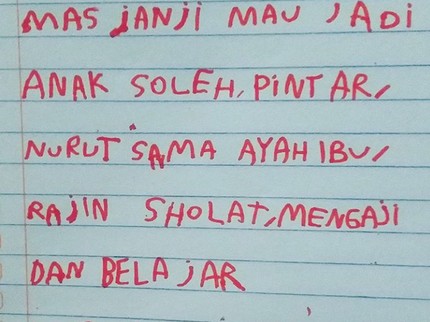 MAS jANji MAU JADi
ANAK SOLEH, PiNTAR,
NURUT SAMA AYAH IBU,
RAjIN SHOLAT, MENGAji
DAN BELAjAR